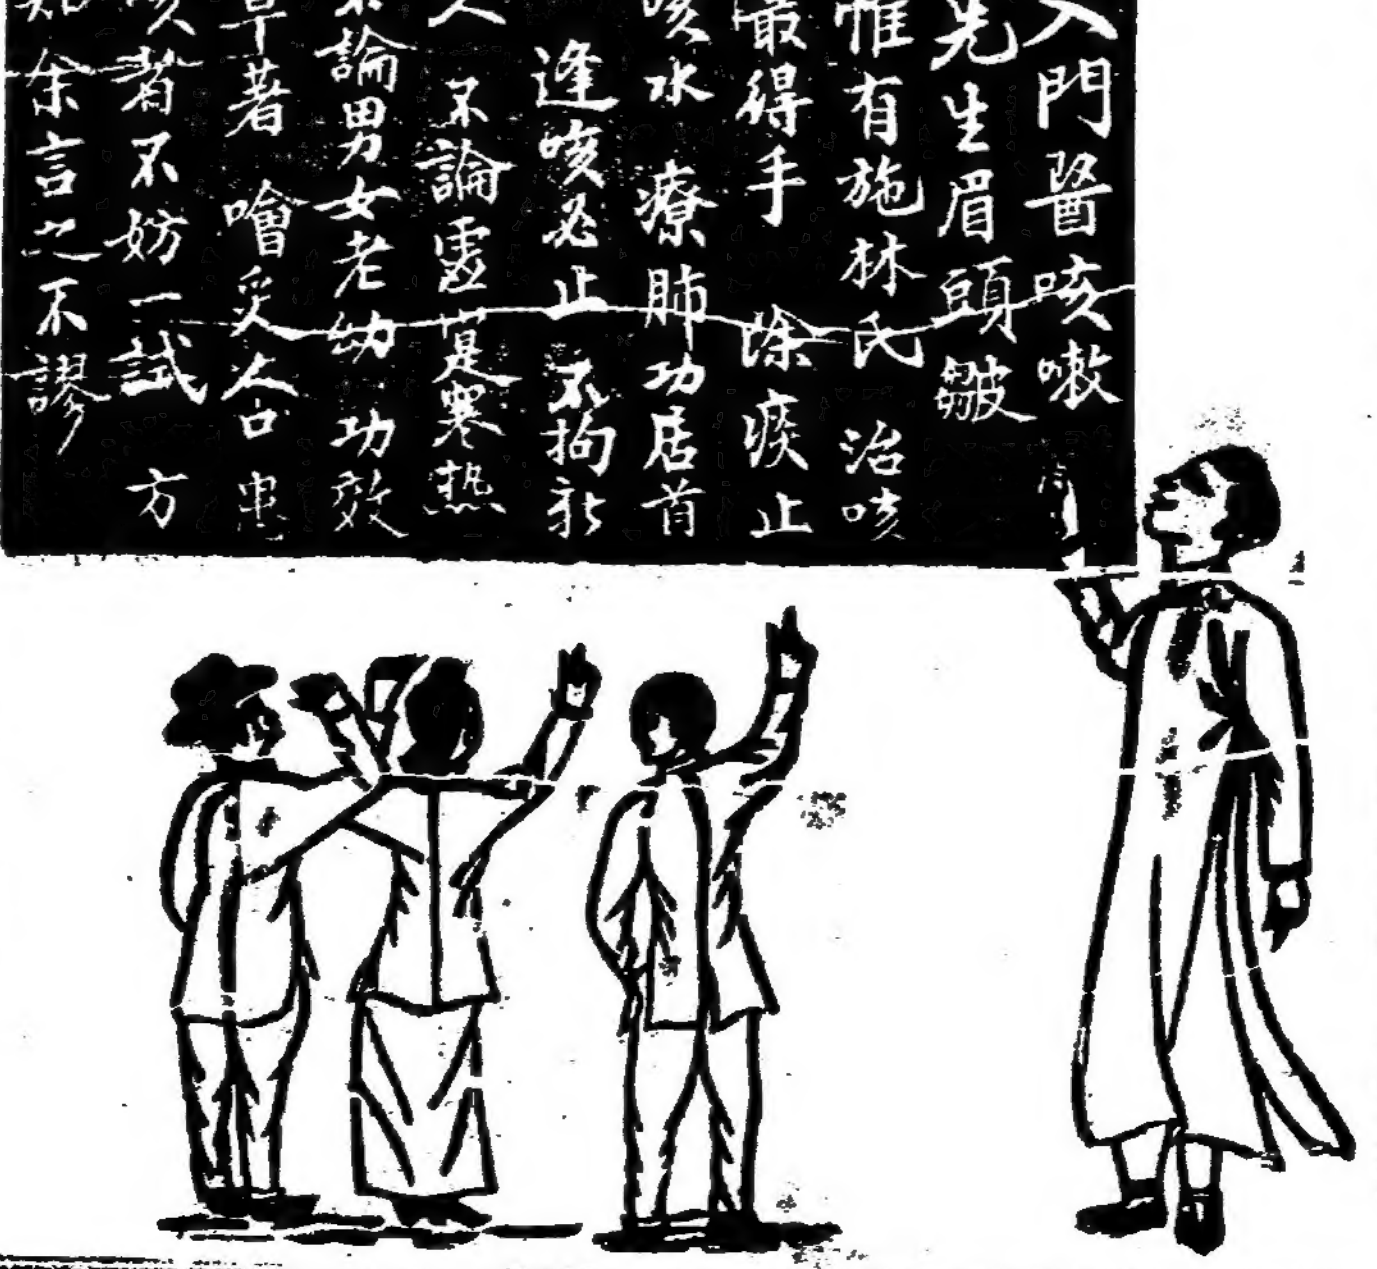 入門醫咳嗽
先生眉頭皺
惟有施林氏 治咳
最得手 除痰止
咳水 療肺功居首
逢咳必止 不拘新
人 不論虛 寒熱
不論男女老幼 功效
卓著 噲受人口 患
咳者不妨一試 方
知余言之不謬